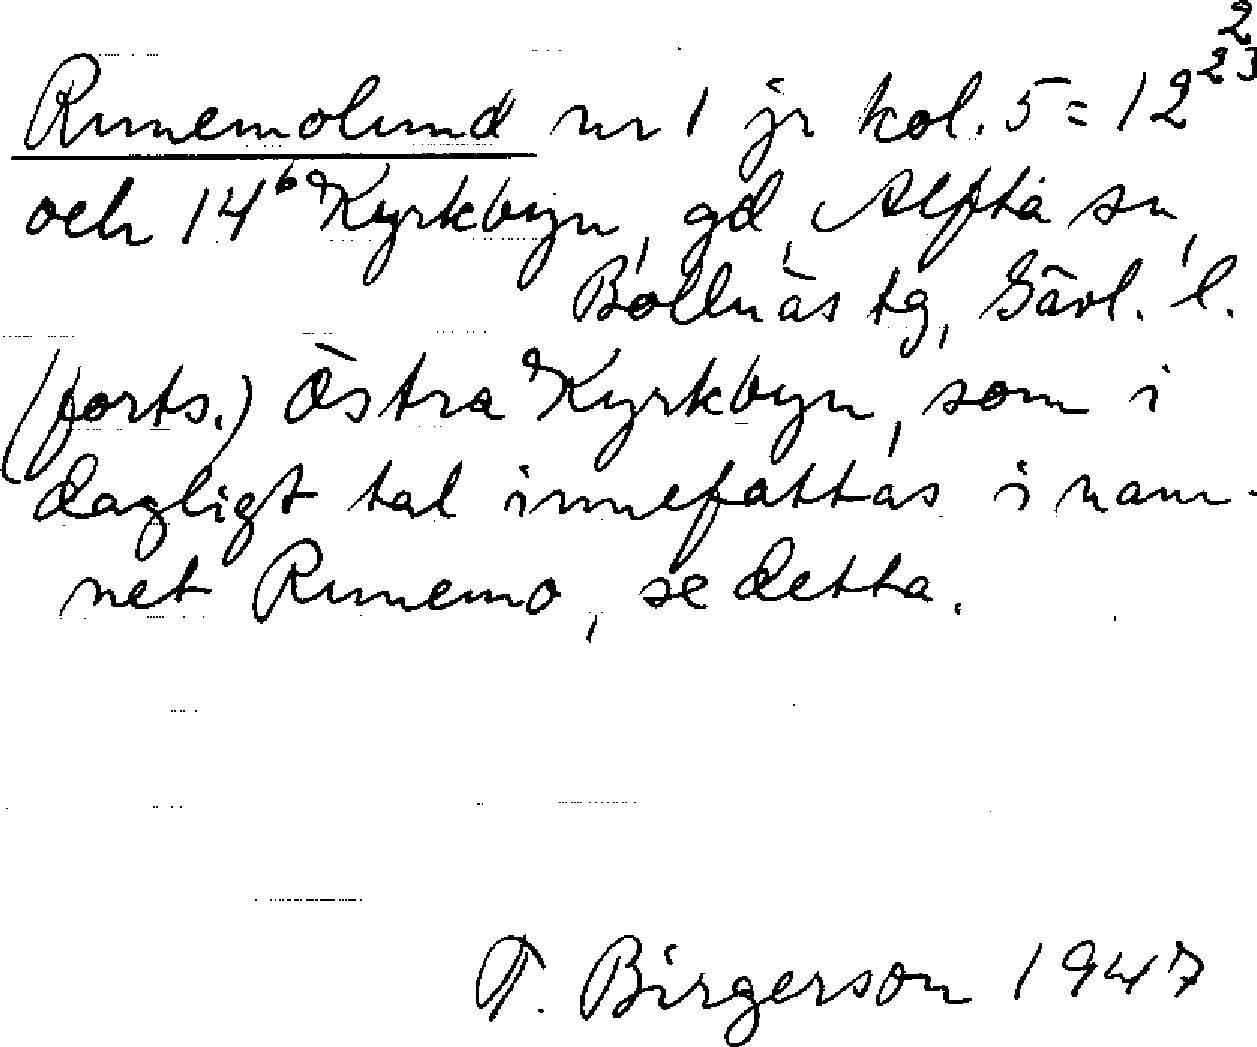 2
Runemolund nr 1 jr kol. 5 = 12²³
och 14⁶ Kyrkbyn, gd, Alfta sn,
Bollnäs tg, Gävl. l.
(forts.) Östra Kyrkbyn, som i
dagligt tal innefattas i nam-
net Runemo, se detta.
T. Birgerson 1947